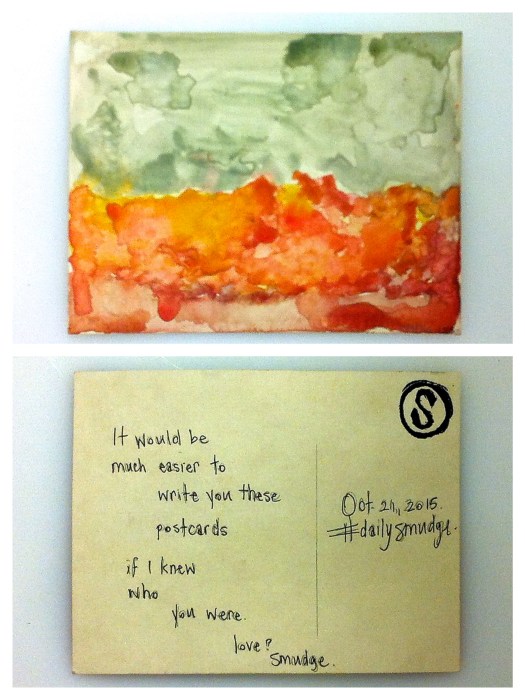 S
It would be
much easier to
write you these
postcards
if I knew
who
you were.
love?
smudge.
Oct. 21, 2015.
#dailysmudge.